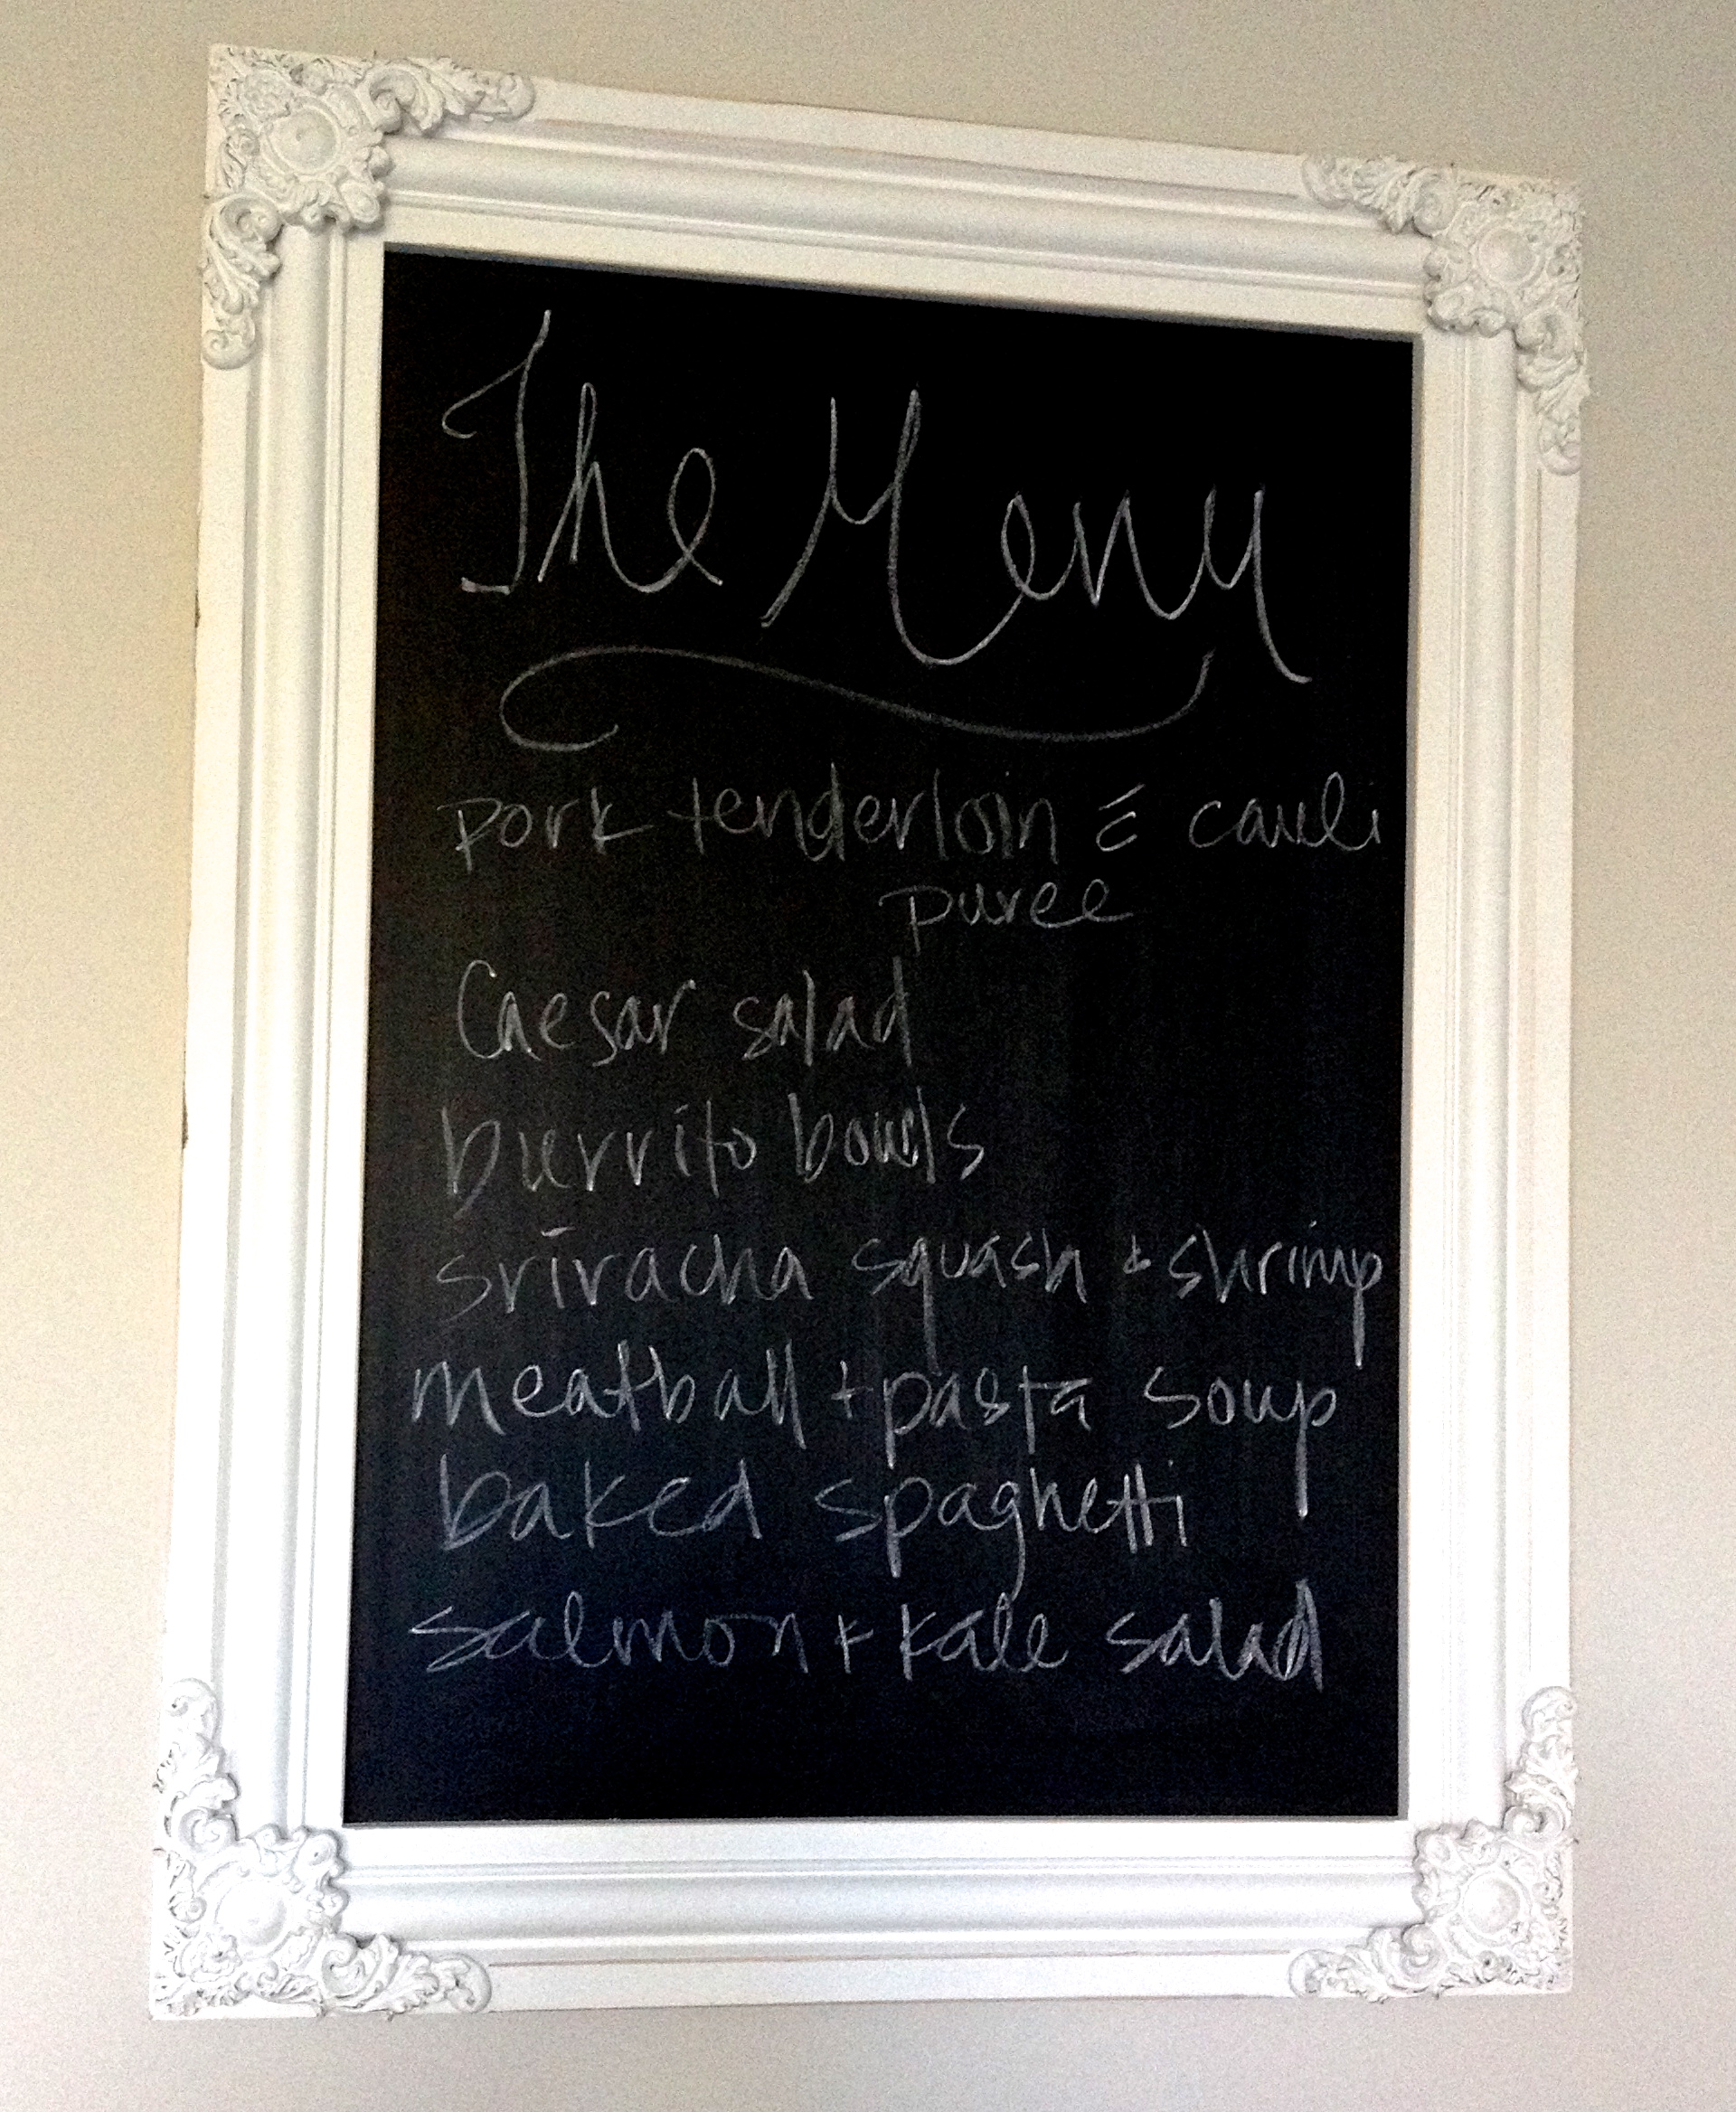 The Menu
pork tenderloin c̄ cauli
puree
Caesar salad
burrito bowls
sriracha squash + shrimp
meatball + pasta soup
baked spaghetti
salmon + kale salad